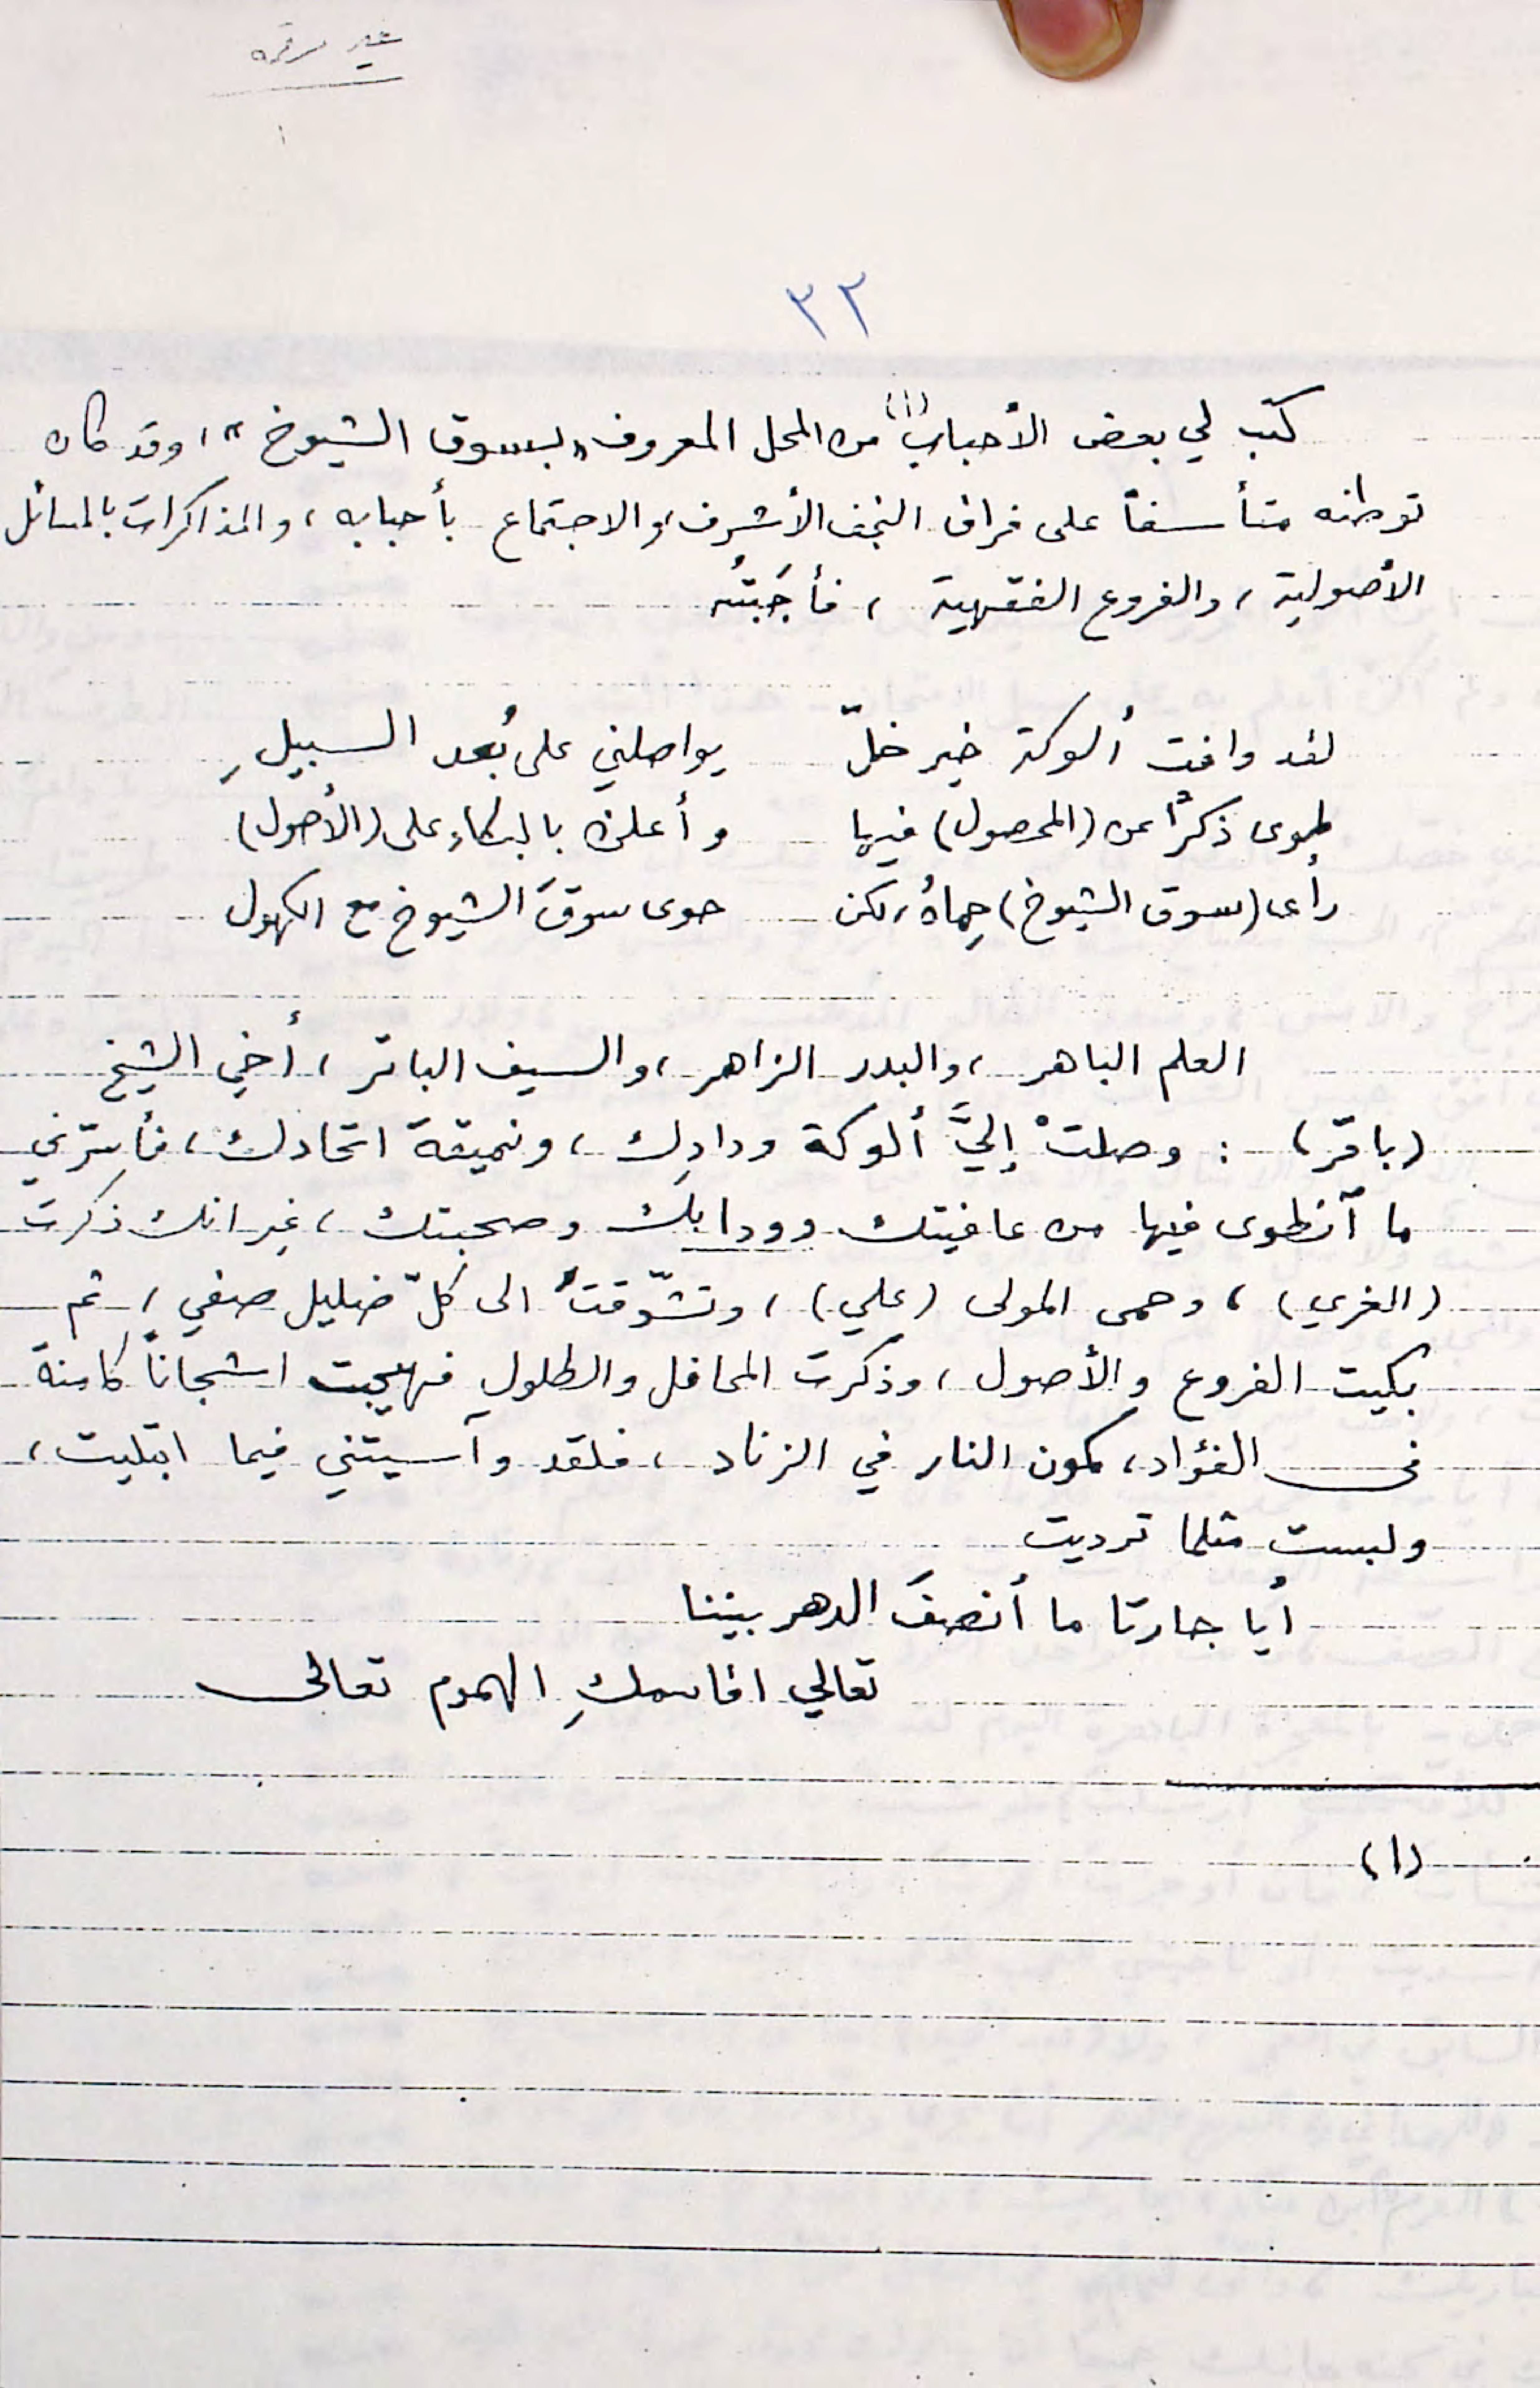 غير مرقمه
٣٢
كتب لي بعض الأحباب(١) من المحل المعروف «بسوق الشيوخ»، وقد كان
توطنه متأسفاً على فراق النجف الأشرف، والاجتماع بأحبابه، والمذاكرات بالمسائل
الأصولية، والفروع الفقهية، فأجَبتُه
لقد وافت ألوكة خير خلّ يواصلني على بُعد السبيلِ
طوى ذكراً عن (المحصول) فيها وأعلن بالبكاءِ على (الأصول)
رأى (سوق الشيوخ) حِماهُ، لكن حوى سوقَ الشيوخ مع الكهول
العلم الباهر، والبدر الزاهر، والسيف الباتر، أخي الشيخ
(باقر): وصلتْ إليَّ ألوكة ودادِك، ونميقة اتحادك، فأسرّني
ما آنطوى فيها من عافيتك وودابك وصحبتك، غير انك ذكرت
(الغري)، وحمى المولى (علي)، وتشّوقتَ الى كلّ ضليل صفي، ثم
بكيت الفروع والأصول، وذكرت المحافل والطلول فهيجت اشجاناً كامنة
في الفؤاد، كمون النار في الزناد، فلقد وآسيتني فيما ابتليت،
ولبست مثلما ترديت
أيا جارتا ما أنصفَ الدهر بيننا
تعالي اقاسمكِ الهموم تعالى
(١)